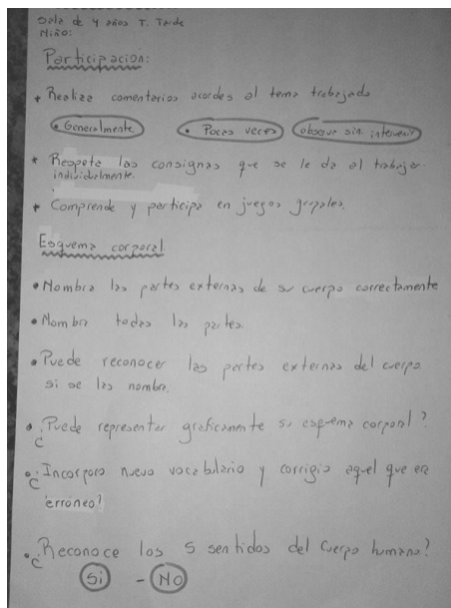 Sala de 4 años T. Tarde
Niño:
Participacion:
* Realiza comentarios acordes al tema trabajado
• Generalmente • Pocas veces observa sin intervenir
* Respeta las consignas que se le da al trabajar
individualmente.
* Comprende y participa en juegos grupales.
Esquema corporal
• Nombra las partes externas de su cuerpo correctamente
• Nombra todas las partes.
• Puede reconocer las partes externas del cuerpo
si se las nombra.
• ¿Puede representar graficamente su esquema corporal?
• ¿Incorporo nuevo vocabulario y corrigio aquel que era
erróneo?
• ¿Reconoce los 5 sentidos del cuerpo humano?
Si - No